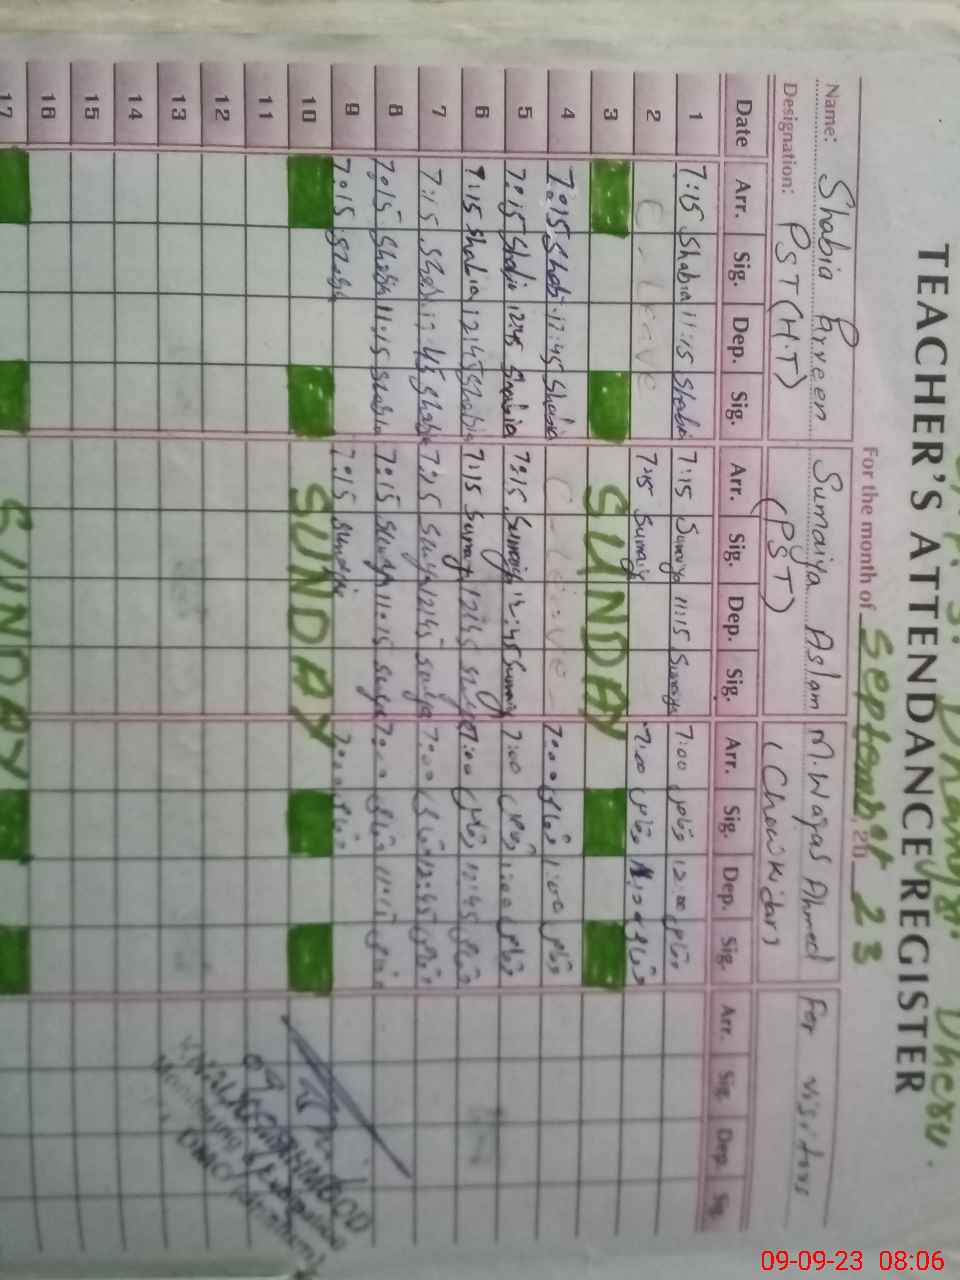 TEACHER'S ATTENDANCE REGISTER
For the month of September, 20 23
Name: Shabia Parveen Sumaiya Aslam M. Waqas Ahmed For visitors
Designation: PST (H.T) (PST) (Chowkidar)
Date Arr. Sig. Dep. Sig. Arr. Sig. Dep. Sig. Arr. Sig. Dep. Sig. Arr. Sig. Dep. Sig.
1 7:15 Shabia 11:15 Shabia 7:15 Sumaiya 11:15 Sumaiya 7:00 وقاص 12:00 وقاص
2 C. Leave 7:15 Sumaiya 7:00 وقاص وقاص
3 SUNDAY
4 7:15 Shabia 12:45 Shabia C. Leave 7:00 وقاص 1:00 وقاص
5 7:15 Shabia 12:45 Shabia 7:15 Sumaiya 12:45 Sumaiya 7:00 وقاص 1:00 وقاص
6 7:15 Shabia 12:45 Shabia 7:15 Sumaiya 12:45 7:00 وقاص 12:45 وقاص
7 7:15 Shabia 12:45 Shabia 7:15 12:45 7:00 وقاص 12:45 وقاص
8 7:15 Shabia 11:15 Shabia 7:15 11:15 7:00 وقاص 11:15 وقاص
9 7:15 Shabia 7:15 7:00 وقاص
10 SUNDAY
11
12
13
14
15
16
17 SUNDAY
09-09-23 08:06